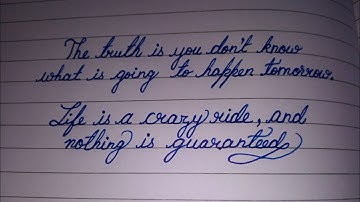 The truth is you don't know
what is going to happen tomorrow.
Life is a crazy ride, and
nothing is guaranteed